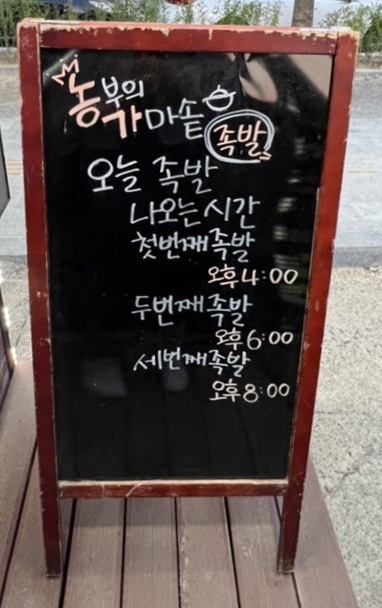 농부의
가마솥
족발
오늘 족발
나오는 시간
첫번째 족발
오후 4:00
두번째 족발
오후 6:00
세번째 족발
오후 8:00